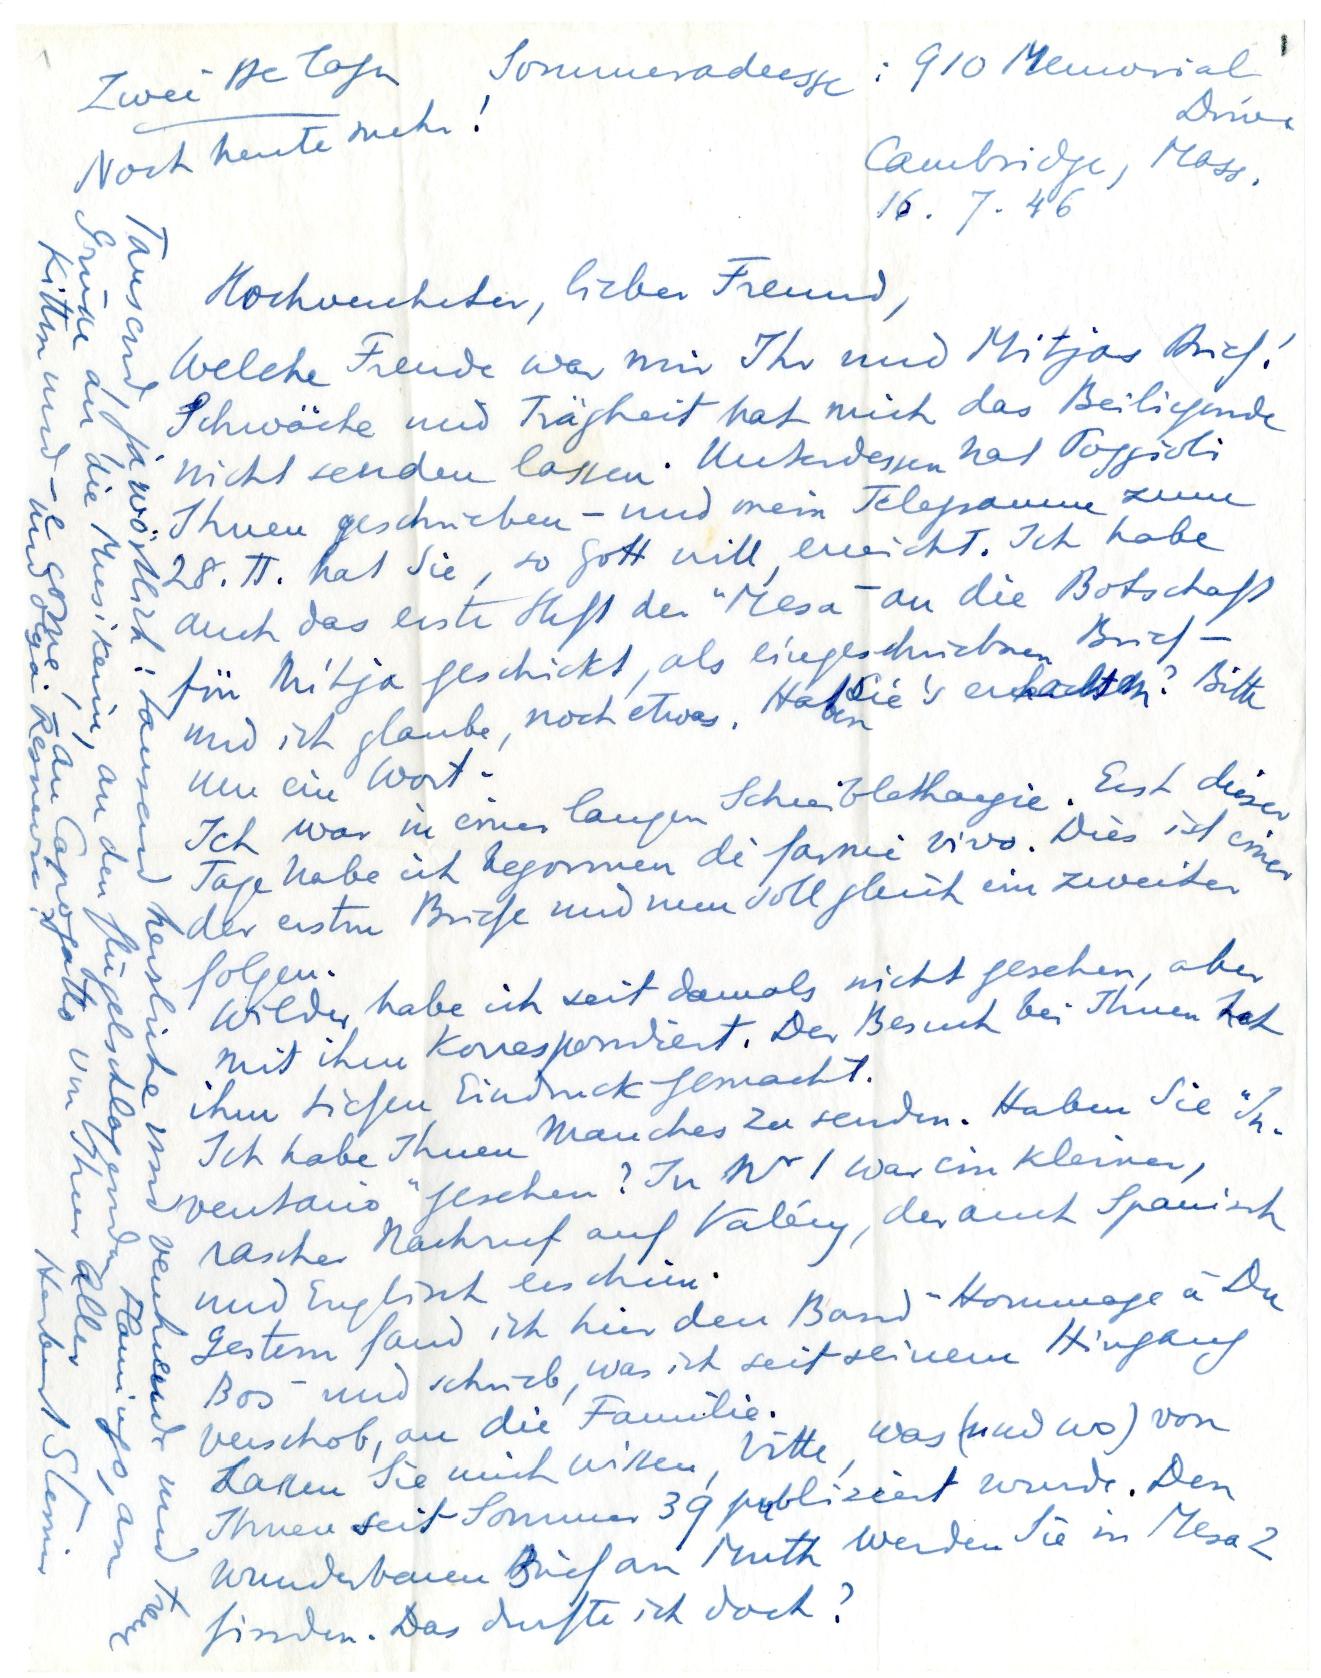 Zwei Beilagen
Noch heute mehr!
Sommeradresse: 910 Memorial
Drive
Cambridge, Mass.
16. 7. 46
Hochverehrter, lieber Freund,
Welche Freude war mir Ihr und Mitjas Brief!
Schwäche und Trägheit hat mich das Beiliegende
nicht senden lassen. Unterdessen hat Poggioli
Ihnen geschrieben – und mein Telegramm zum
28. II. hat Sie, so Gott will, erreicht. Ich habe
auch das erste Heft der "Mesa" an die Botschaft
für Mitja geschickt, als eingeschriebnen Brief –
und ich glaube, noch etwas. Haben Sie's erhalten? Bitte
um ein Wort.
Ich war in einer langen Schreiblethargie. Erst dieser
Tage habe ich begonnen di farmi vivo. Dies ist einer
der ersten Briefe und nun soll gleich ein zweiter
folgen.
Wilder habe ich seit damals nicht gesehen, aber
mit ihm korrespondiert. Der Besuch bei Ihnen hat
ihm tiefen Eindruck gemacht.
Ich habe Ihnen Manches zu senden. Haben Sie "In-
ventario" gesehen? In Nr 1 war ein kleiner,
rascher Nachruf auf Valéry, der auch Spanisch
und Englisch erschien.
Gestern fand ich hier den Band "Hommage à Du
Bos" und schrieb, was ich seit seinem Hingang
verschob, an die Familie.
Lassen Sie mich wissen, bitte, was (und wo) von
Ihnen seit Sommer 39 publiziert wurde. Den
wunderbaren Brief an Muth werden Sie in Mesa 2
finden. Das durfte ich doch?
Tausend, ja wörtlich: tausend herzliche und verehrende und treue
Grüße an die Musikerin, an den flügelschlagenden Flamingo, an
Kitten und – è gonne, an Capogatto von Ihrer aller
und Olga Resnevic.
Herbert Steiner